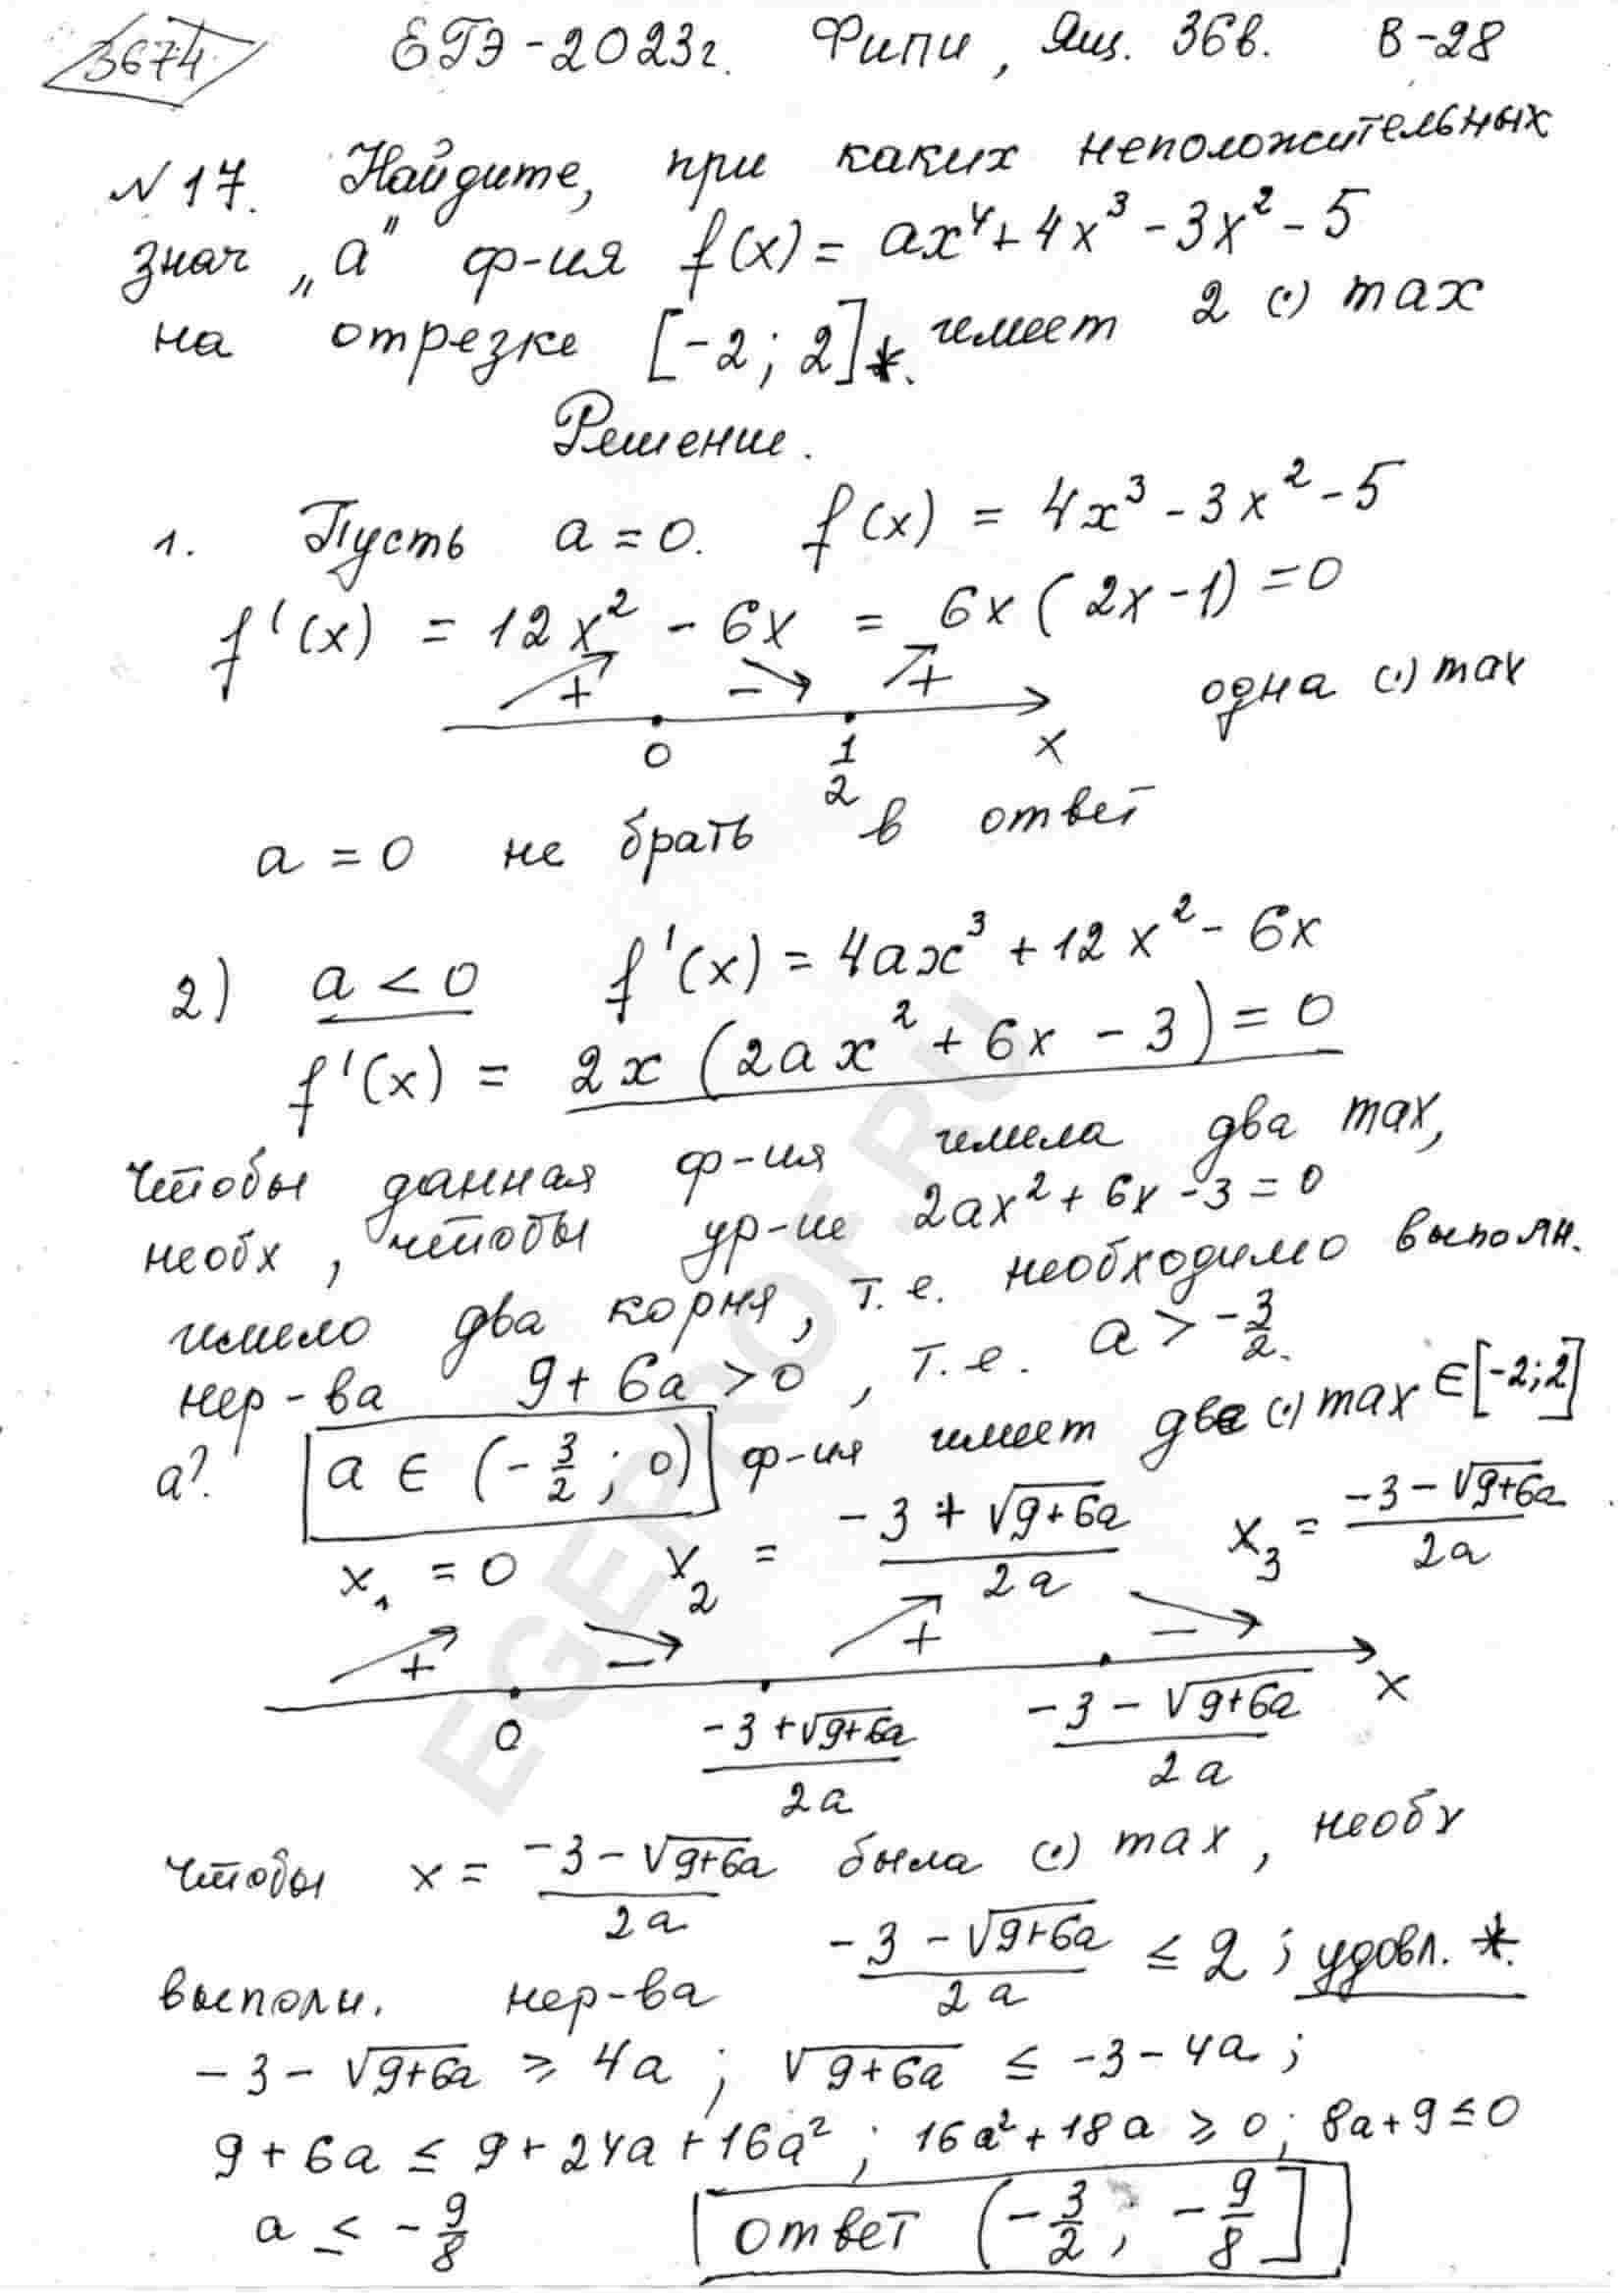 3674 ЕГЭ-2023г. Фипи, Ящ. 36в. В-28
N17. Найдите, при каких неположительных
знач „a" ф-ия f(x) = ax⁴ + 4x³ - 3x² - 5
на отрезке [-2; 2]*. имеет 2 (·) max
Решение.
1. Пусть a = 0. f(x) = 4x³ - 3x² - 5
f'(x) = 12x² - 6x = 6x(2x - 1) = 0
+ - + одна (·) max
0 1/2 x
a = 0 не брать в ответ
2) a < 0 f'(x) = 4ax³ + 12x² - 6x
f'(x) = 2x(2ax² + 6x - 3) = 0
Чтобы данная ф-ия имела два max,
необх, чтобы ур-ие 2ax² + 6x - 3 = 0
имело два корня, т.е. необходимо выполн.
нер-ва 9 + 6a > 0, т.е. a > -3/2.
a? a ∈ (-3/2; 0) ф-ия имеет две (·) max ∈ [-2; 2]
x₁ = 0 x₂ = (-3 + √(9+6a))/2a x₃ = (-3 - √(9+6a))/2a
+ - + -
0 (-3 + √(9+6a))/2a (-3 - √(9+6a))/2a x
Чтобы x = (-3 - √(9+6a))/2a была (·) max, необх
выполн. нер-ва (-3 - √(9+6a))/2a ≤ 2; удовл. *.
-3 - √(9+6a) ≥ 4a; √(9+6a) ≤ -3 - 4a;
9 + 6a ≤ 9 + 24a + 16a²; 16a² + 18a ≥ 0; 8a + 9 ≤ 0
a ≤ -9/8 ответ (-3/2; -9/8]
EGEPROF.RU